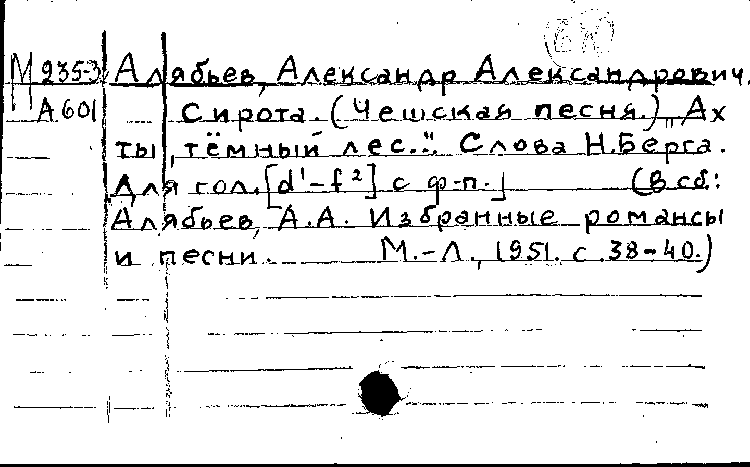 БК
М 235-3 Алябьев, Александр Александрович.
А 601 Сирота. (Чешская песня.) „Ах
ты, тёмный лес.." Слова Н.Берга.
Для гол.[d¹-f²] с ф-п.] (В сб.:
Алябьев, А.А. Избранные романсы
и песни. М.-Л., 1951. с.38-40.)